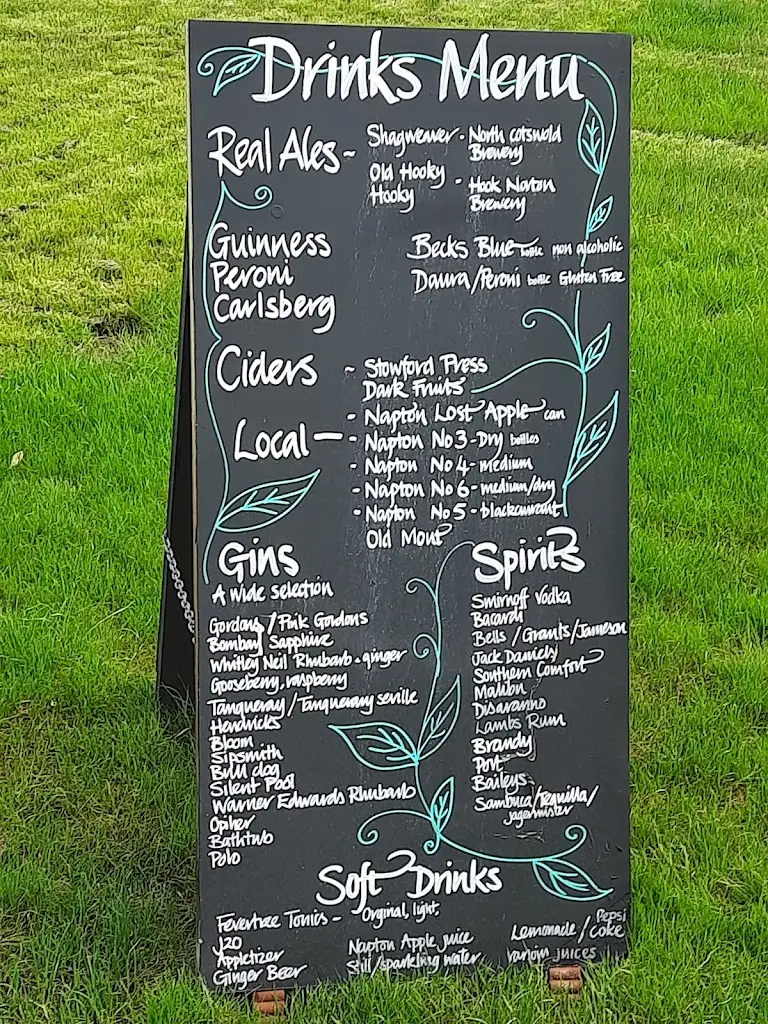 Drinks Menu
Real Ales ~ Shagweaver - North Cotswold
Brewery
Old Hooky
Hooky - Hook Norton
Brewery
Guinness
Peroni
Carlsberg
Becks Blue bottle non alcoholic
Daura/Peroni bottle Gluten Free
Ciders ~ Stowford Press
Dark Fruits
Local —
- Napton Lost Apple can
- Napton No 3 - Dry bottles
- Napton No 4 - medium
- Napton No 6 - medium/dry
- Napton No 5 - blackcurrant
Old Mout
Gins
A wide selection
Gordons / Pink Gordons
Bombay Sapphire
Whitley Neil Rhubarb & ginger
Gooseberry, raspberry
Tanqueray / Tanqueray seville
Hendricks
Bloom
Sipsmith
Bull dog
Silent Pool
Warner Edwards Rhubarb
Opiher
Bathtwo
Polo
Spirits
Smirnoff Vodka
Bacardi
Bells / Grants / Jameson
Jack Daniels
Southern Comfort
Malibu
Disaranno
Lambs Rum
Brandy
Port
Baileys
Sambuca / Tequilla /
Jagermister
Soft Drinks
Fevertree Tonics - Orginal, light,
J20
Appletizer
Ginger Beer
Napton Apple Juice
Still / sparkling water
Lemonade / Pepsi
Coke
various juices